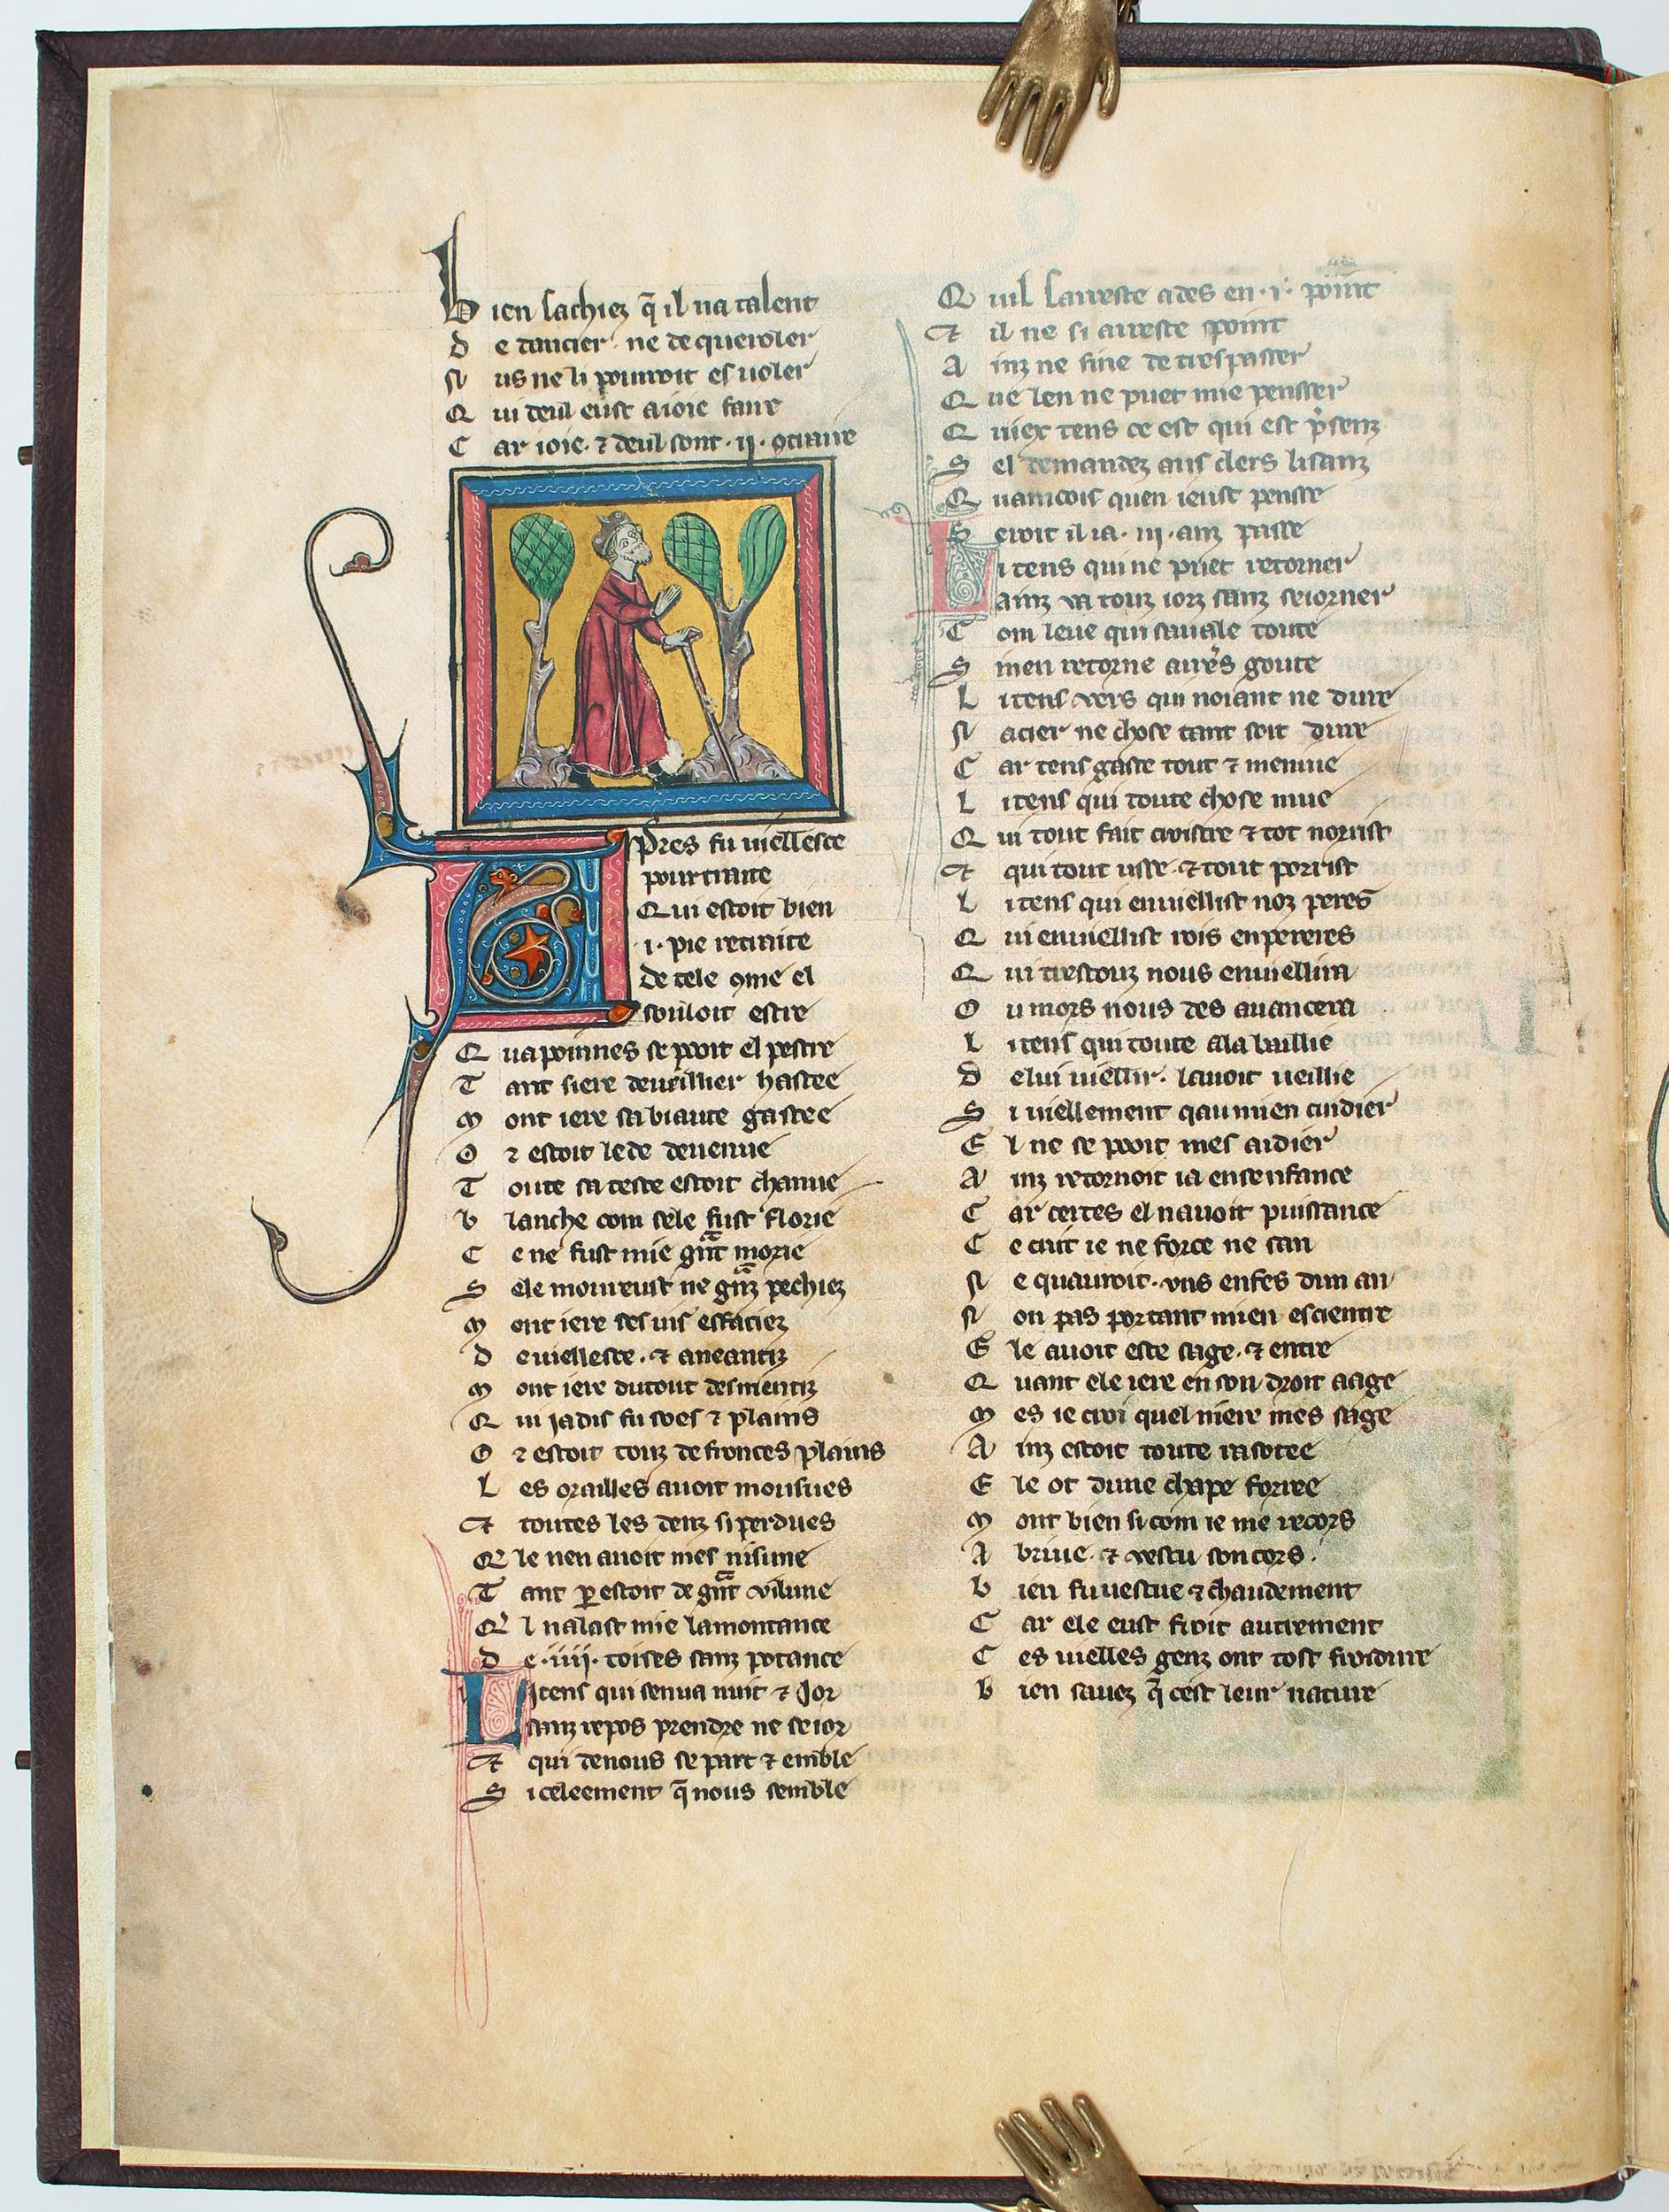 Bien sachiez q̃ il na talent
De dancier ne de queroler
Nus ne li pourroit esuoler
Qui deul eust a ioie faire
Car ioie · ⁊ deul sont · ij · ꝯtraire
Apres fu viellesce
pourtraite
Qui estoit bien
· i · pie retraite
de tele ꝯme el
souloit estre
Qua poinnes se pooit el pestre
Tant
Mont iere sa biaute gastee
Or estoit lede deuenue
Toute sa teste estoit chanue
Blanche com sele fust florie
Ce ne fust mie g̃nt morie
Sele mourust ne g̃nz pechiez
Mont iere ses uis effaciez
De viellesce · ⁊ aneantiz
Mont iere du tout desmentiz
Qui jadis fu soes ⁊ plains
Or estoit touz de fronces plains
Les orailles auoit moussues
Et toutes les denz si perdues
Qele nen auoit mes nisune
Tant ꝑ estoit de g̃nt vilune
Qel nalast mie la montance
De · iiij · toises sanz potance
Li tens qui senua nuit ⁊ jor
sanz repos prendre ne seior
Et qui de nous se part ⁊ emble
Si celeement q̃ nous semble
Quil sarreste ades en · i · point
Et il ne si arreste point
Ainz ne fine de trespasser
Que len ne puet mie pensser
Quiex tens ce est qui est p̾senz
Sel demandez aus clers lisanz
Quaincois quen ieust pensse
Seroit il ia · iij · anz passe
Li tens qui ne puet retorner
ainz va touz iorz sanz seiorner
Com leue qui sauale toute
Sinen retorne arres goute
Li tens vers qui noiant ne dure
Nacier ne chose tant soit dure
Car tens gaste tout ⁊ meniue
Li tens qui toute chose mue
Qui tout fait croistre ⁊ tot norrist
Et qui tout usse · ⁊ tout porrist
Li tens qui enuiellist noz peres
Qui enuiellist rois enpereres
Qui trestouz nous enuiellira
Ou mors nous des auancera
Li tens qui toute a la baillie
De lui viellir · lauoit veillie
Si viellement qau mien cuidier
El ne se pooit mes aidier
Ainz retornoit ia en senfance
Car certes el nauoit puissance
Ce cuit ie ne force ne san
Ne quauroit · vns enfes dun an
Non pas portant mien escientre
Ele auoit este sage · ⁊ entre
Quant ele iere en son droit aage
Mes ie croi quel niere mes sage
Ainz estoit toute rasotee
Ele ot dune chape forree
Mont bien si com ie me recors
Abrie · ⁊ vestu son cors ·
Bien fu uestue ⁊ chaudement
Car ele eust froit autrement
Ces vielles genz ont tost froidure
Bien sauez q̃ cest leur nature